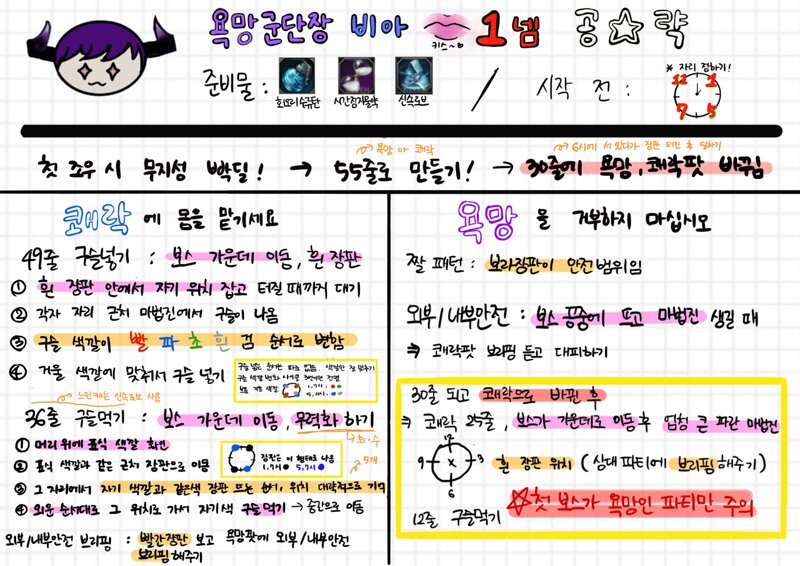 욕망군단장 비아키스 1넴 공☆략
키스~♥
준비물 :
회오리수류탄 시간정지물약 신속로브
/ 시작 전 :
* 자리 정하기!
11 1
9 5
→ 욕망 아 쾌락
→ 6시에 서 있다가 잡몹
첫 조우 시 무지성 빡딜! → 55줄로 만들기! → 30줄에 욕망, 쾌락팟 바뀜
쾌락에 몸을 맡기세요
49줄 구슬넣기 : 보스 가운데 이동, 흰 장판
① 흰 장판 안에서 자기 위치 잡고 터질 때까지 대기
② 각자 자리 근처 마법진에서 구슬이 나옴
③ 구슬 색깔이 빨 파 초 흰 검 순서로 변함
④ 거울 색깔에 맞춰서 구슬 넣기
→ 느린캐는 신속로브 사용
36줄 구슬먹기 : 보스 가운데 이동, 무력화 하기
① 머리 위에 표식 색깔 확인
② 표식 색깔과 같은 근처 장판으로 이동
장판은 이 형태로 나옴
1.7시 ● 5.11시 ●
5개
③ 그 자리에서 자기 색깔과 같은색 장판 뜨는 순서, 위치 대략적으로 기억
④ 외운 순서대로 그 위치로 가서 자기색 구슬 먹기 → 중간으로 이동
외부/내부안전 브리핑 : 빨간장판 보고 욕망팟에 외부/내부안전
브리핑 해주기
욕망을 거부하지 마십시오
짤 패턴 : 보라장판이 안전범위임
외부/내부안전 : 보스 공중에 뜨고 마법진 생길 때
⇒ 쾌락팟 브리핑 듣고 대피하기
30줄 되고 쾌락으로 바뀐 후
⇒ 쾌락 25줄, 보스가 가운데로 이동 후 엄청 큰 파란 마법진
12
9 x 3
6
흰 장판 위치 (상대 파티에 브리핑 해주기)
☆첫 보스가 욕망인 파티만 주의
12줄 구슬먹기